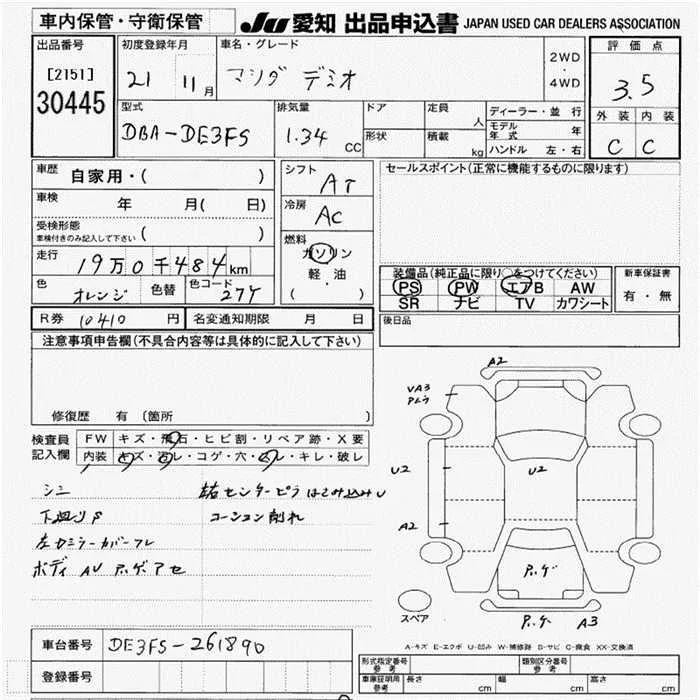 車内保管・守衛保管
JU 愛知 出品申込書 JAPAN USED CAR DEALERS ASSOCIATION
出品番号
[2151]
30445
初度登録年月
21 11 月
車名・グレード
マツダ デミオ
2WD
・
4WD
評価点
3.5
外装 内装
C C
型式
DBA-DE3FS
排気量
1.34 CC
ドア
形状
定員 人
積載 kg
ディーラー・並行
モデル年式 年
ハンドル 左・右
車歴 自家用・( )
車検 年 月( 日)
受検形態
車検付きのみ記入して下さい ( )
走行 19万0千484km
色 オレンジ 色替 色コード 27Y
シフト AT
冷房 AC
燃料
ガソリン
軽・油
( ・ )
セールスポイント(正常に機能するものに限ります)
装備品(純正品に限り○をつけてください)
PS PW エアB AW
SR ナビ TV カワシート
新車保証書
有・無
R券 10410 円 名変通知期限 月 日
後日品
注意事項申告欄(不具合内容等は具体的に記入して下さい)
修復歴 有 〔箇所 〕
検査員記入欄
FW キズ・飛石・ヒビ割・リペア跡・X要
内装 キズ・汚レ・コゲ・穴・スレ・キレ・破レ
シミ
下廻りS
左カミラーカバーフレ
ボディ AU
センターピラ はさみ込みU
コーション削れ
A2
VA3
U2
U2
A2
A3
スペア
A-キズ E-エクボ U-凹み W-補修跡 S-サビ C-腐食 XX-交換済
車台番号 DE3FS-261890
登録番号
形式指定番号 参考
類別区分番号 参考
車庫証明用 参考 長さ cm 幅 cm 高さ cm